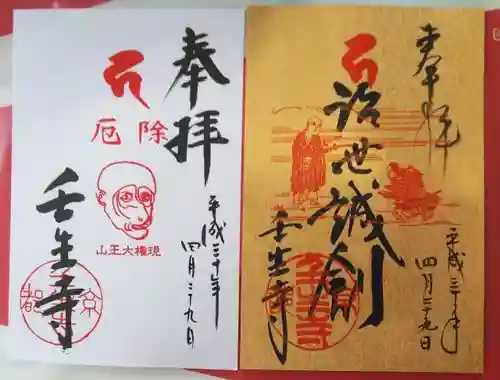 奉拝
平成三十年
四月二十九日
厄除
山王大權現
壬生寺
京都
奉拝
平成三十年
四月二十九日
世誠
壬生寺